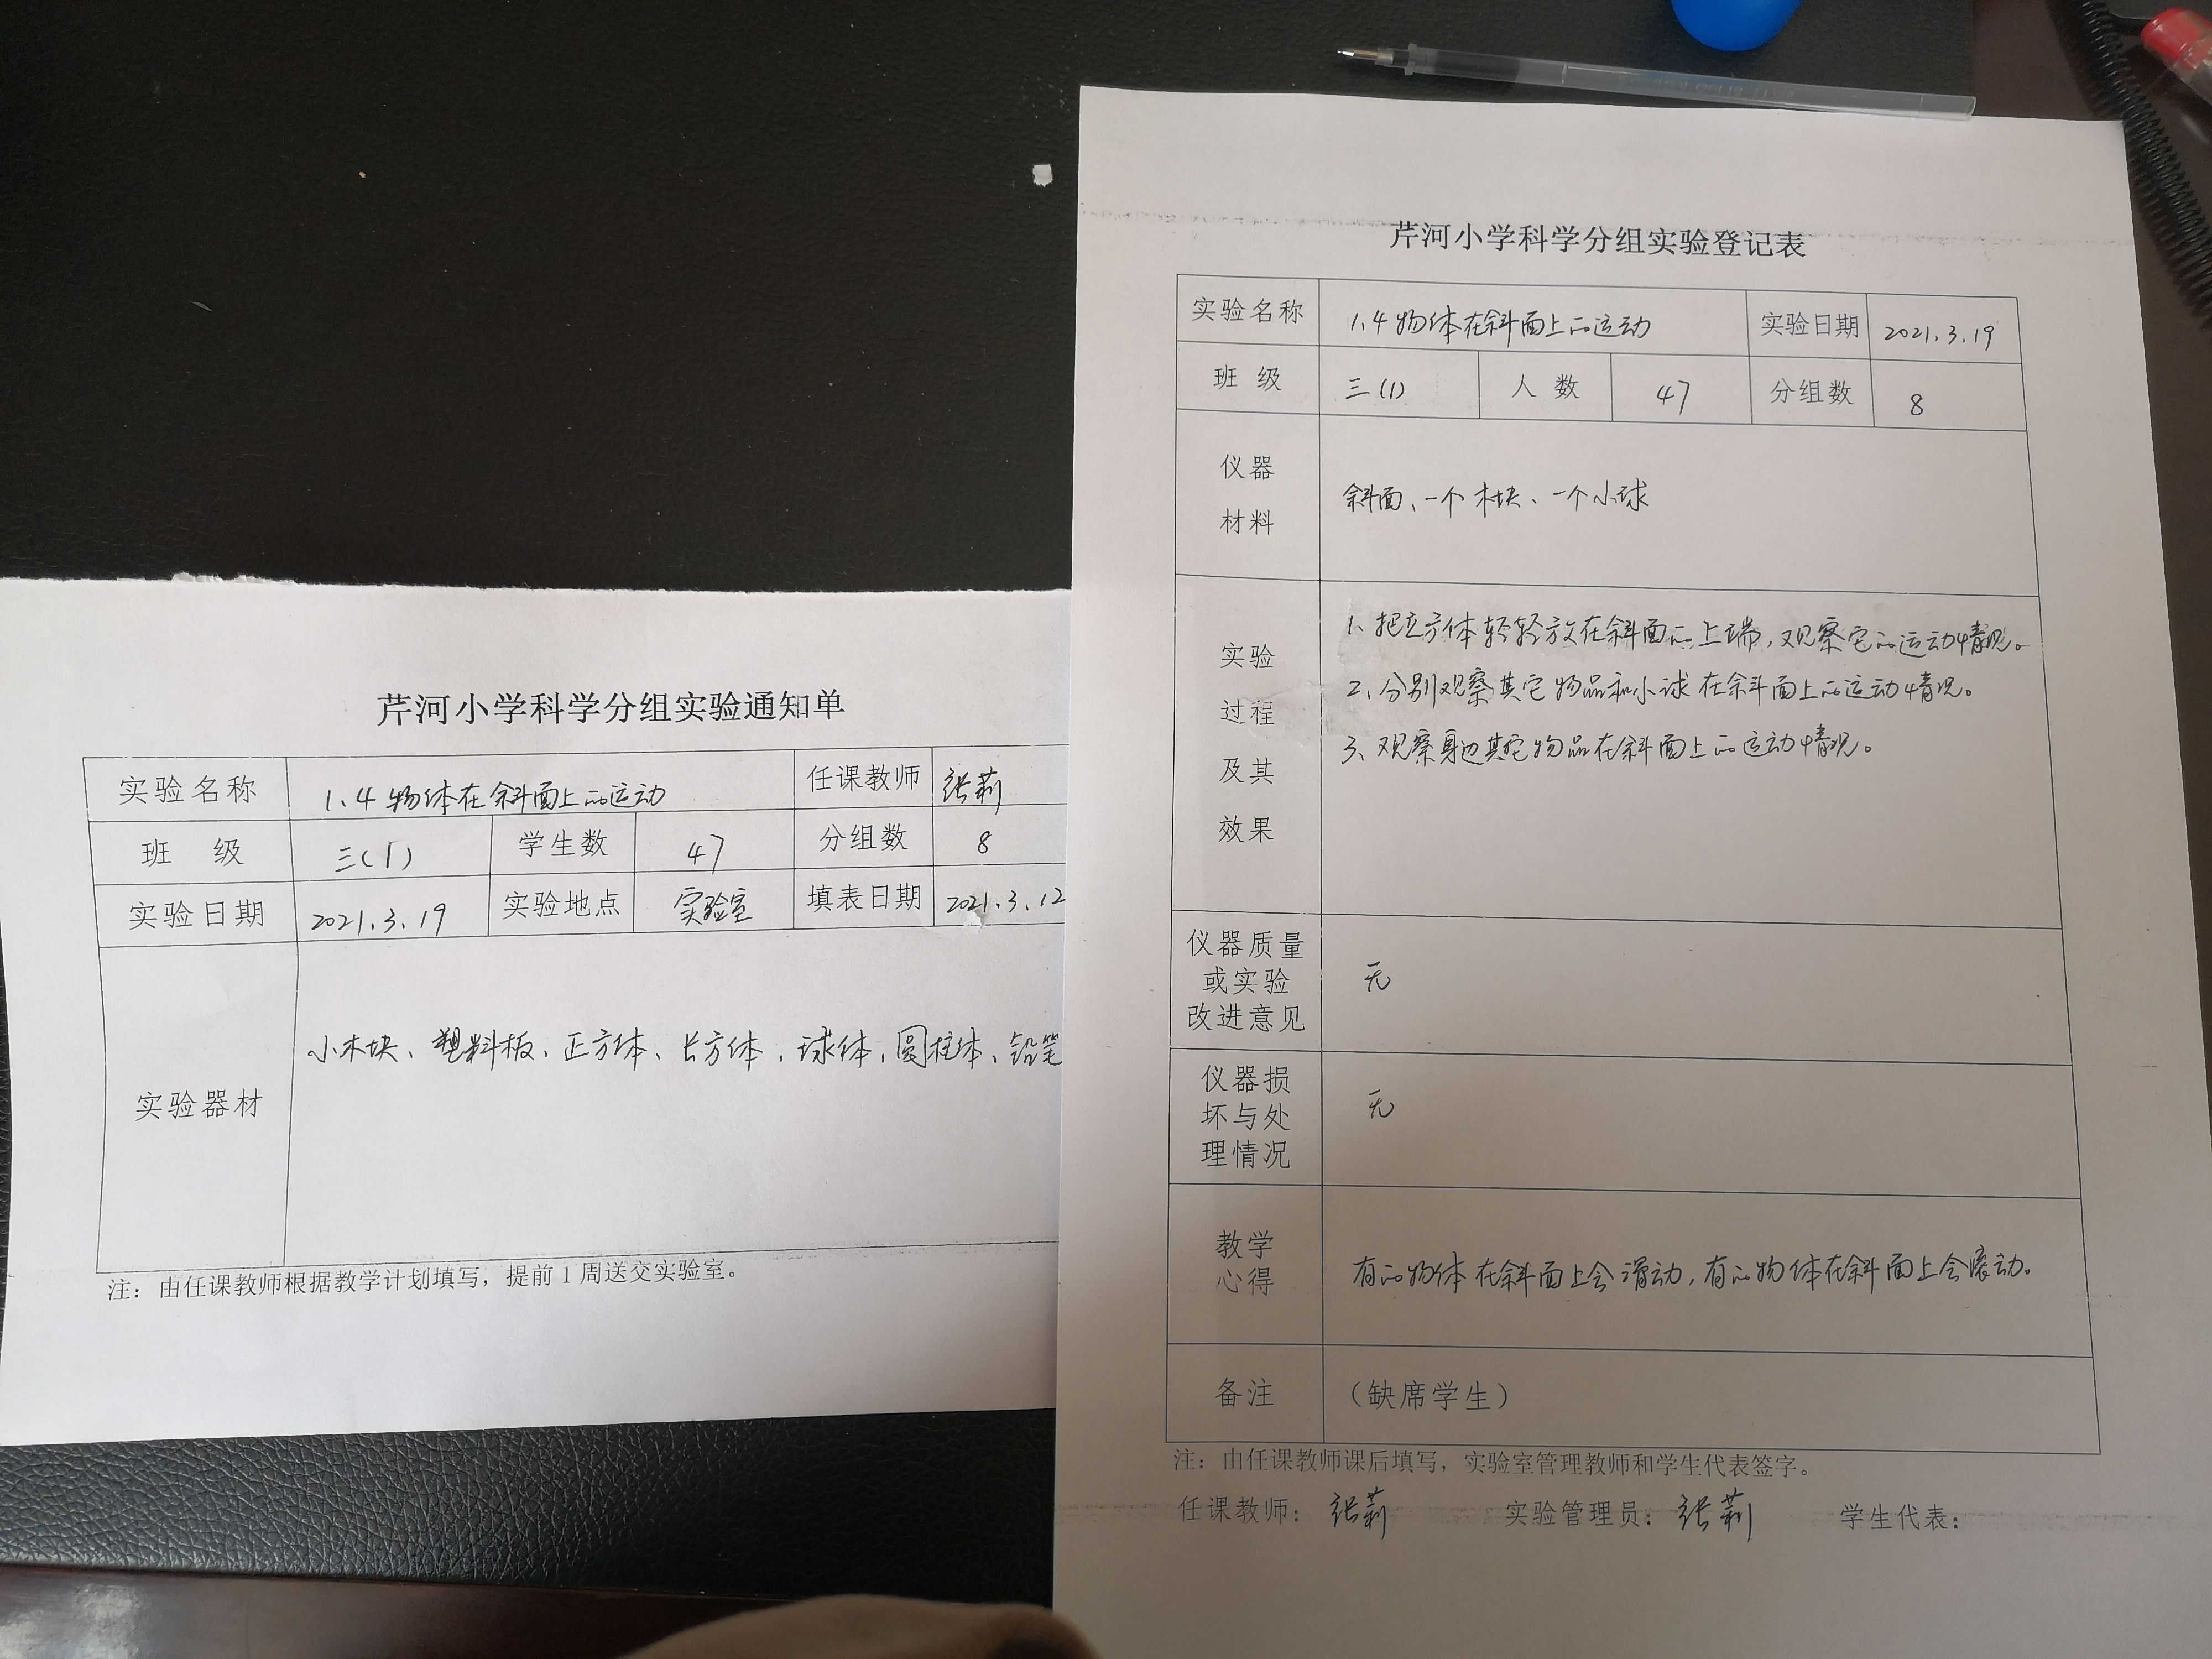 芹河小学科学分组实验通知单
实验名称 1.4 物体在斜面上的运动 任课教师 张莉
班 级 三(1) 学生数 47 分组数 8
实验日期 2021.3.19 实验地点 实验室 填表日期 2021.3.12
实验器材 小木块、塑料板、正方体、长方体、球体、圆柱体、铅笔
注：由任课教师根据教学计划填写，提前1周送交实验室。
芹河小学科学分组实验登记表
实验名称 1.4 物体在斜面上的运动 实验日期 2021.3.19
班 级 三(1) 人 数 47 分组数 8
仪器
材料
斜面、一个木块、一个小球
实验
过程
及其
效果
1、把立方体轻轻放在斜面的上端，观察它的运动情况。
2、分别观察其它物品和小球在斜面上的运动情况。
3、观察身边其它物品在斜面上的运动情况。
仪器质量
或实验
改进意见
无
仪器损
坏与处
理情况
无
教学
心得
有的物体在斜面上会滑动，有的物体在斜面上会滚动。
备注 （缺席学生）
注：由任课教师课后填写，实验室管理教师和学生代表签字。
任课教师：张莉 实验管理员：张莉 学生代表：